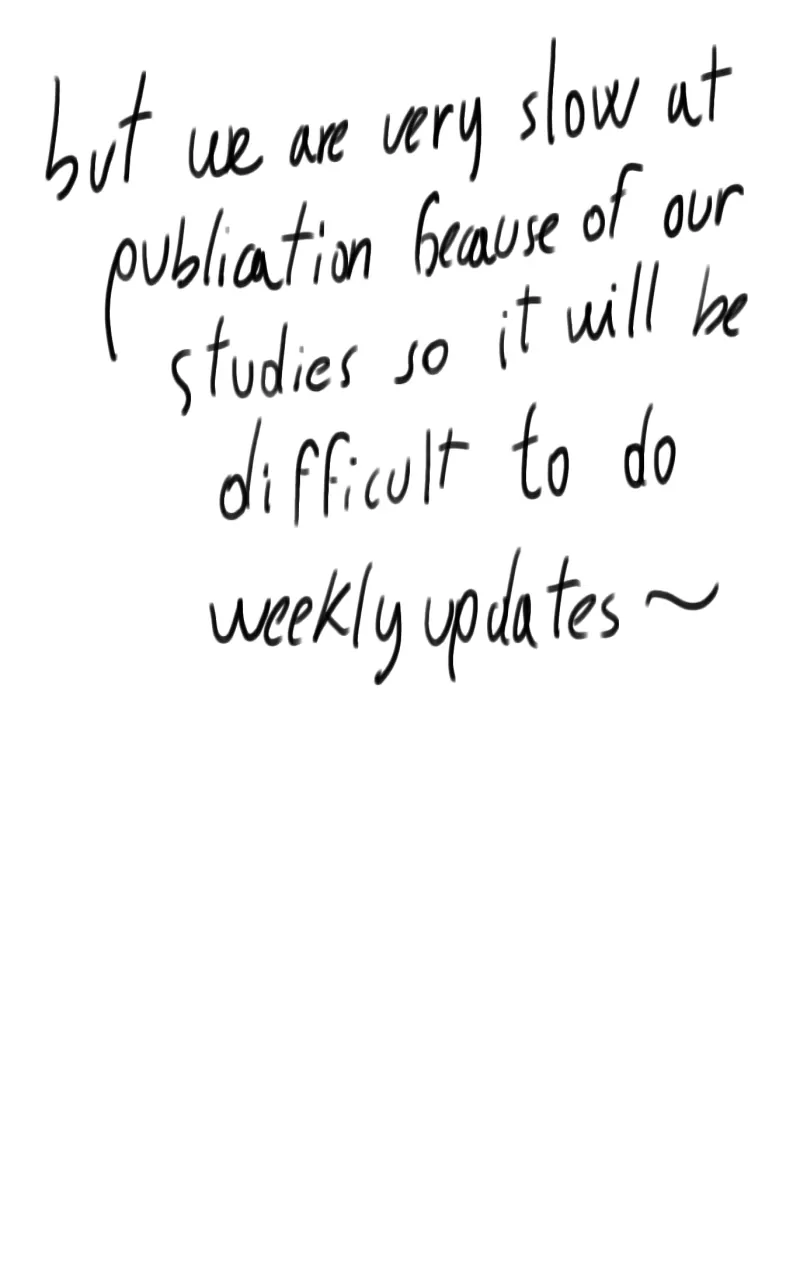 but we are very slow at
publication because of our
studies so it will be
difficult to do
weekly updates ~